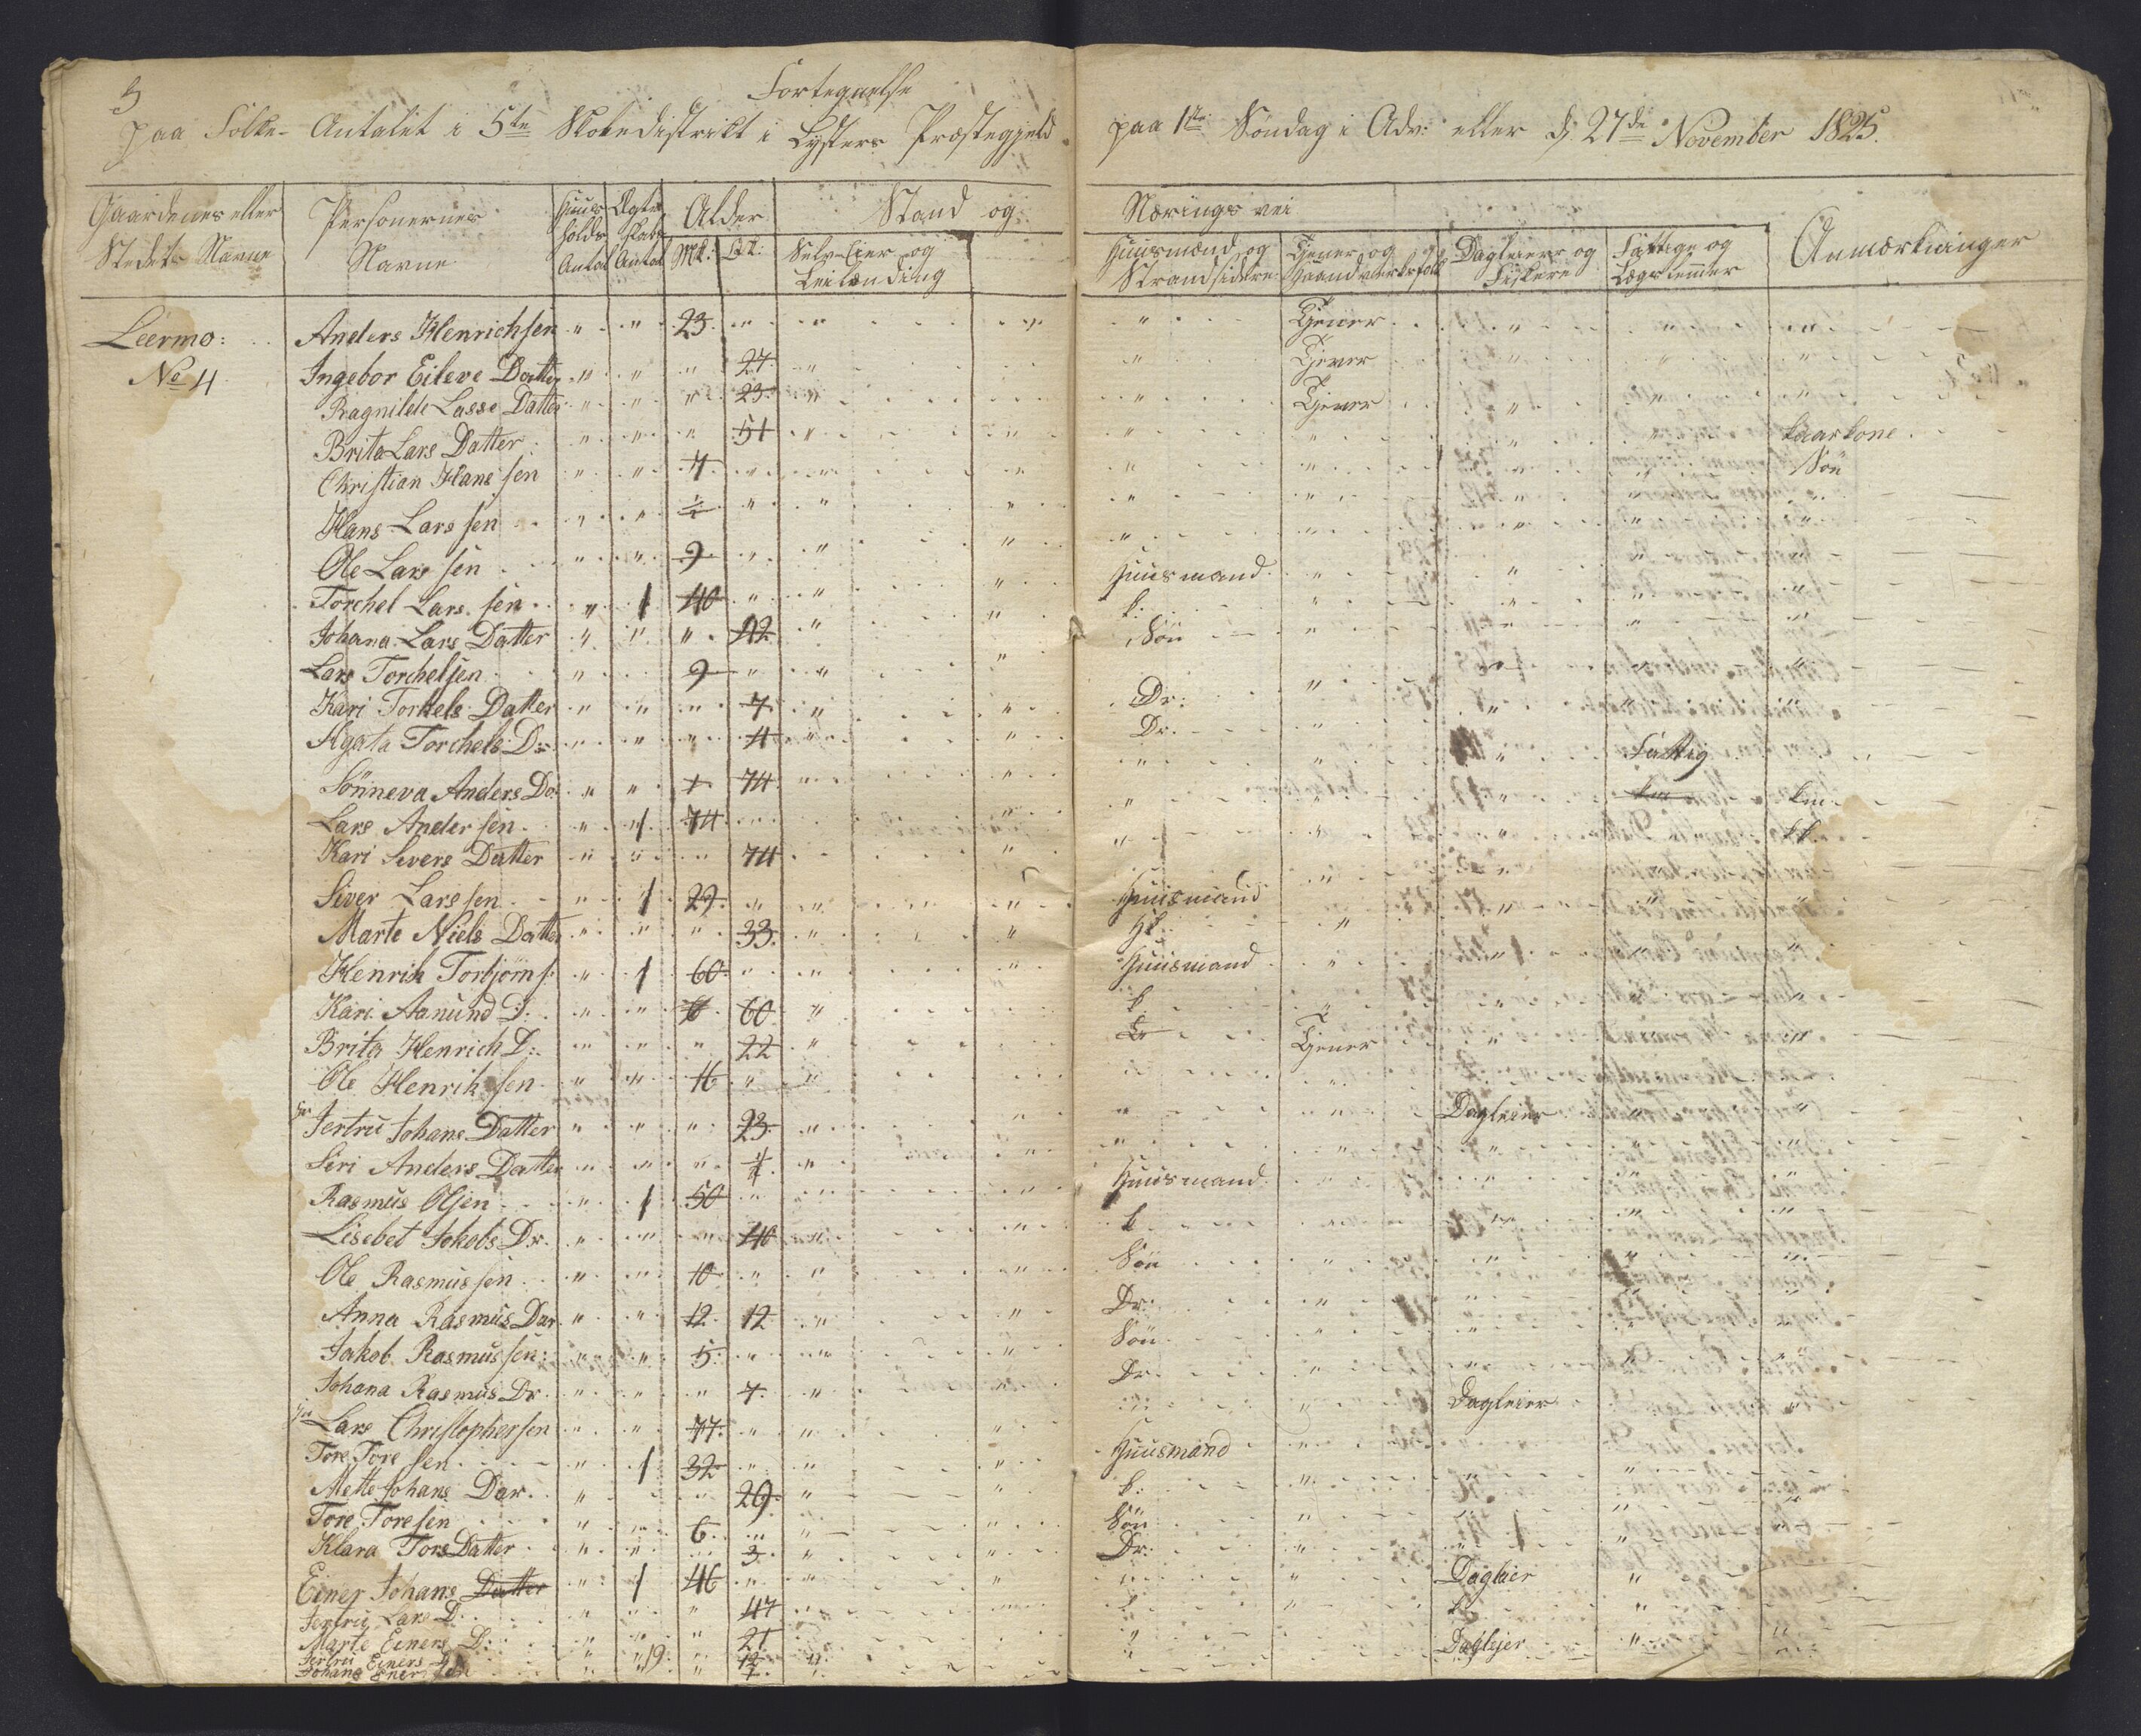 3
Fortegnelse
paa Folke-Antalet i 5te Skoledistrikt i Lysters Præstegjeld paa 1ste Søndag i Adv: eller d. 27de November 1825.
Gaardenes eller Stedets Navne
Personernes Navne
Huusholds Antal
Ægteskabs Antal
Alder
Mk:
Qk:
Stand og Nærings vei
Selv-Eier og Leilænding
Huusmænd og Strandsidere
Tjener og Haandverksfolk
Dagleiere og Fiskere
Fattige og Lægslemmer
Anmærkninger
Leermo:
No 4
Anders Henrichsen " " 23 " " Tjener
Ingebor Eileve Datter " " " 27 " Tjener
Ragnilde Lasse Datter " " " 23 " Tjener
Brita Lars Datter " " " 51 " Kaarkone
Christian Hans sen " " 7 " " Søn
Hans Lars sen " " ½ " "
Ole Lars sen " " 9 " "
Torchel Lars sen " 1 40 " " Huusmand
Johana Lars Datter " " " 42 " k:
Lars Torchelsen " 9 " " Søn
Kari Torkels Datter " " " 7 " Dr:
Agata Torchels Dr " " " 4 " Dr.
Sönneva Anders Dr " " 1 74 " Fattig
Lars Andersen " 1 74 " km
Kari Sivers Datter " " " 74 kk
Siver Lars sen " 1 29 " " Huusmand
Marte Niels Datter " " " 33 " Hk
Henrik Torbjörns " 1 60 " " Huusmand
Kari Aamund D: " " 60 " k
Brita Henrich D: " " " 22 " Tjener
Ole Henriksen " " 16 " "
Jertru Johans Datter " " " 23 " Dagleier
Siri Anders Datter " " " "
Rasmus Olsen " 1 50 " " Huusmand
Lisebet Jokobs Dr. " " " 40 " k
Ole Rasmussen " " 10 " " Søn
Anna Rasmus Dar " " 12 12 " Dr:
Jakob Rasmussen: " " 5 " " Søn
Johana Rasmus Dr " " " 7 " Dr.
Lars Christophersen " " 77 " " Dagleier
Tore Tore sen " 1 32 " " Huusmand
Mette Johans Dar. " " 29 " k:
Tore Toresen " " 6 " " Søn
Klara Tors Datter " " 3 " Dr:
Einer Johans Datter " 1 46 " " Dagleier
Jertru Lars D: " " " 47 " k
Marte Einers D: " " " 21 " Dagleier
Jertru Einers D " 19 " 12 "
Johans Einer sen